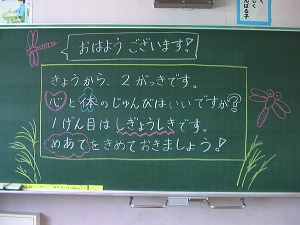 おはようございます!
きょうから、2がっきです。
心と体のじゅんびはいいですか?
1げん目はしぎょうしきです。
めあてをきめておきましょう!